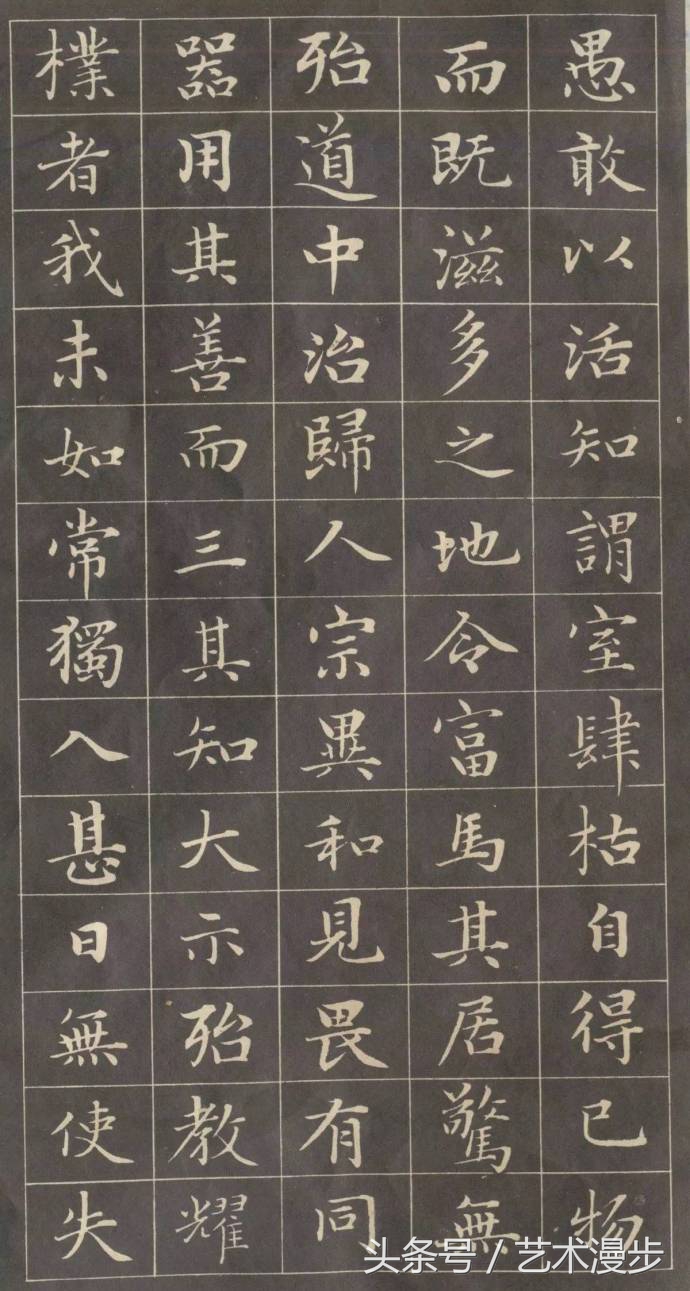 愚敢以活知謂室肆枯自得已物
而既滋多之地令富馬其居驚無
殆道中治歸人宗異和見畏有同
器用其善而三其知大示殆教耀
樸者我未如常獨入甚日無使失
头条号／艺术漫步